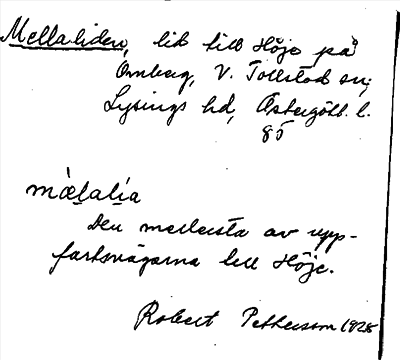 Mellaliden, lid till Höje på
Omberg, V. Tollstad sn,
Lysings hd, Östergötl. l.
85
mæ̀lalía
Den mellersta av upp-
fartsvägarna till Höje.
Robert Pettersson 1928